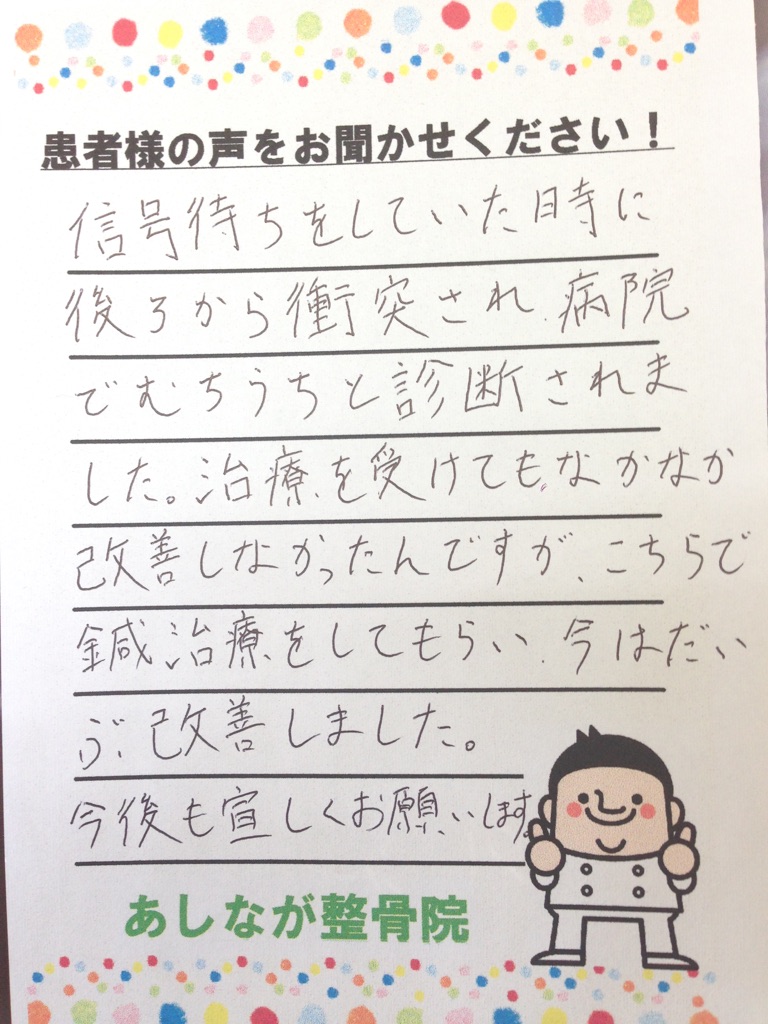 患者様の声をお聞かせください！
信号待ちをしていた時に
後ろから衝突され、病院
でむちうちと診断されま
した。治療を受けてもなかなか
改善しなかったんですが、こちらで
鍼治療をしてもらい、今はだい
ぶ改善しました。
今後も宜しくお願いします。
あしなが整骨院